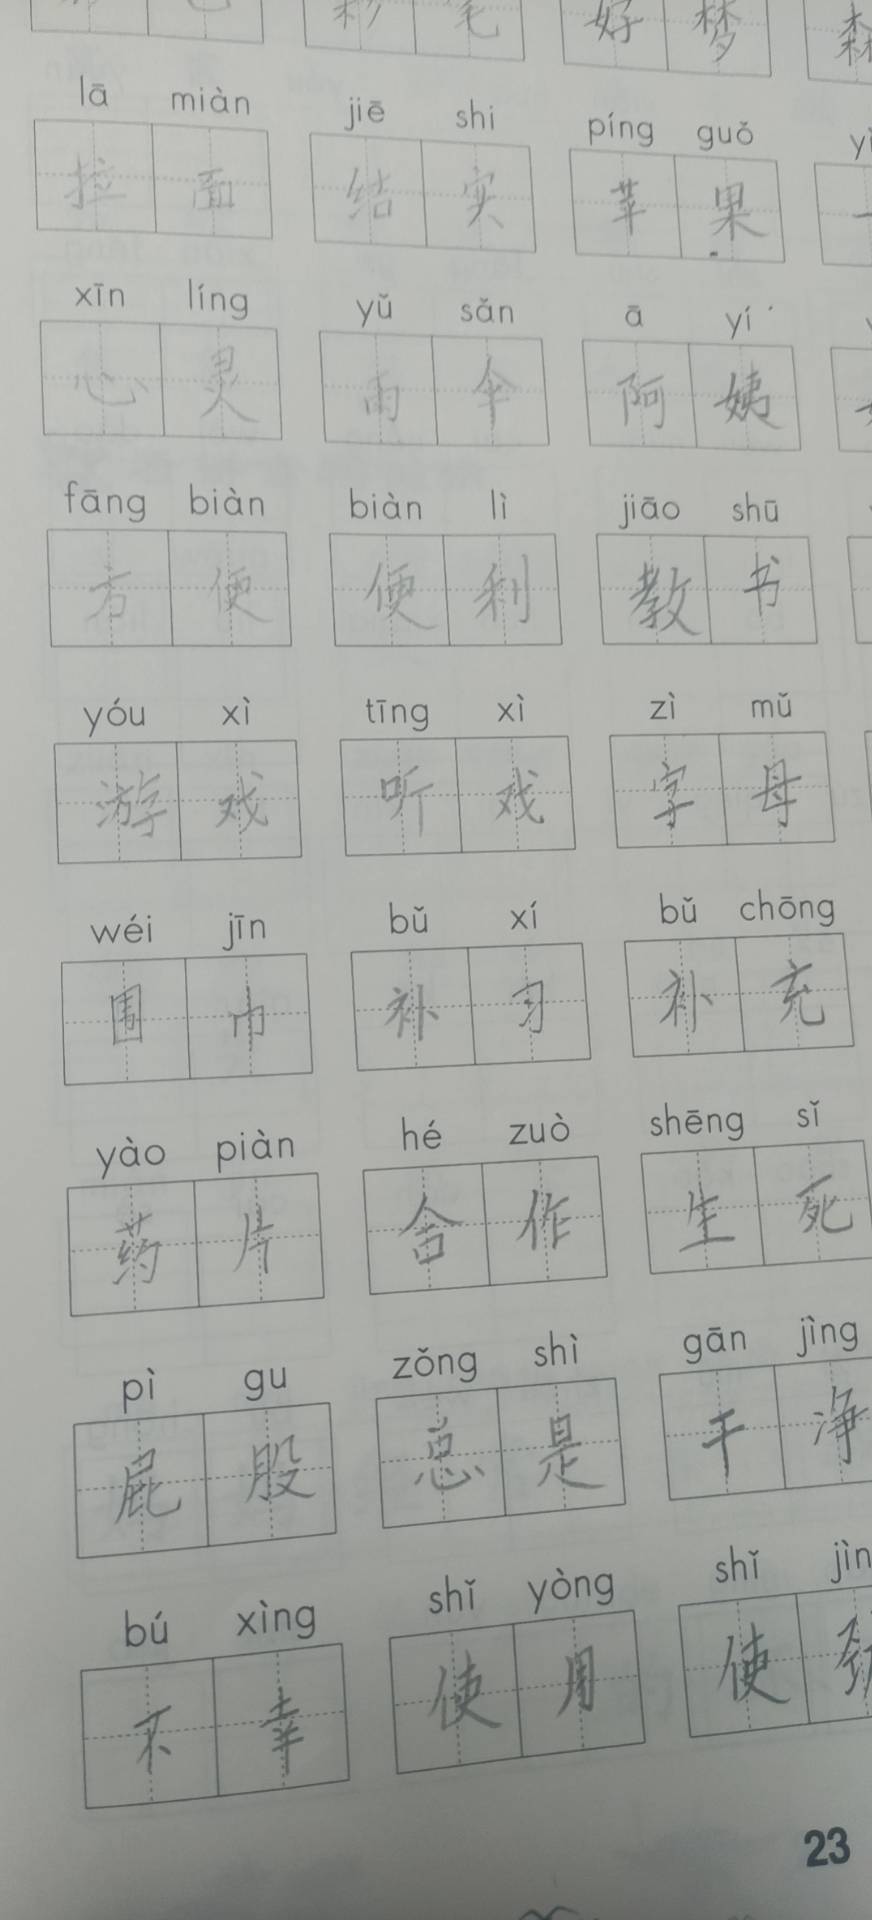 彩 笔 好 梦 森
lā miàn jiē shi píng guǒ
拉 面 结 实 苹 果
xīn líng yǔ sǎn ā yí
心 灵 雨 伞 阿 姨
fāng biàn biàn lì jiāo shū
方 便 便 利 教 书
yóu xì tīng xì zì mǔ
游 戏 听 戏 字 母
wéi jīn bǔ xí bǔ chōng
围 巾 补 习 补 充
yào piàn hé zuò shēng sǐ
药 片 合 作 生 死
pì gu zǒng shì gān jìng
屁 股 总 是 干 净
bú xìng shǐ yòng shǐ jìn
不 幸 使 用 使
23